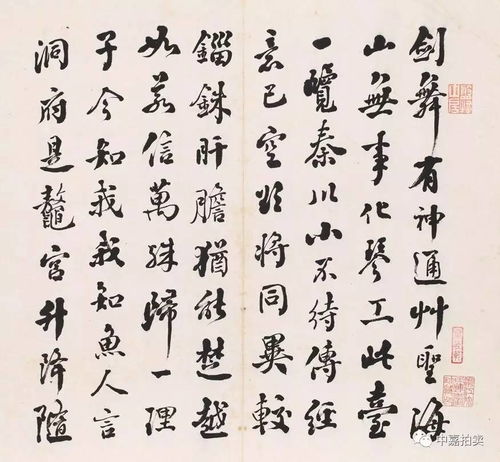 劍舞有神通艸聖海
山無事化琴工此臺
一覽秦川小不待傳經
意已空欲將同異較
錙銖肝膽猶能楚越
如若信萬殊歸一理
子今知我我知魚人言
洞府是鼇宮升降隨
中嘉拍卖